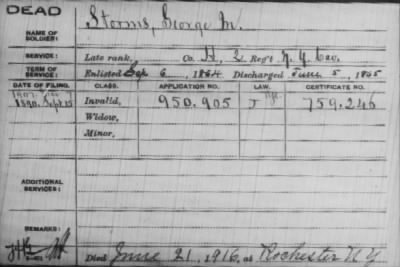 DEAD
NAME OF SOLDIER: Storms, George M.
SERVICE: Late rank, Co. H, 2 Reg't N.Y. Cav.
TERM OF SERVICE: Enlisted Sep 6, 1864, Discharged June 5, 1865
DATE OF FILING. CLASS. APPLICATION NO. LAW. CERTIFICATE NO.
1890, Sept 15 Invalid, 950.905 J 759.246
Widow,
Minor,
ADDITIONAL SERVICES:
REMARKS:
Died June 21, 1916, at Rochester N Y